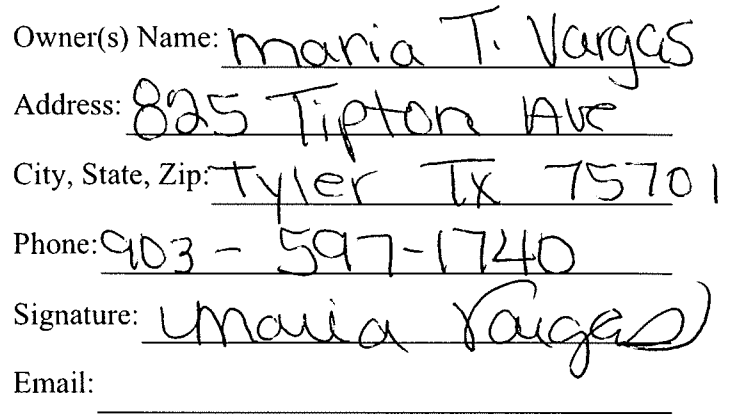 Owner(s) Name: Maria T. Vargas
Address: 825 Tipton Ave
City, State, Zip: Tyler Tx 75701
Phone: 903 - 597-1740
Signature: Maria Vargas
Email: